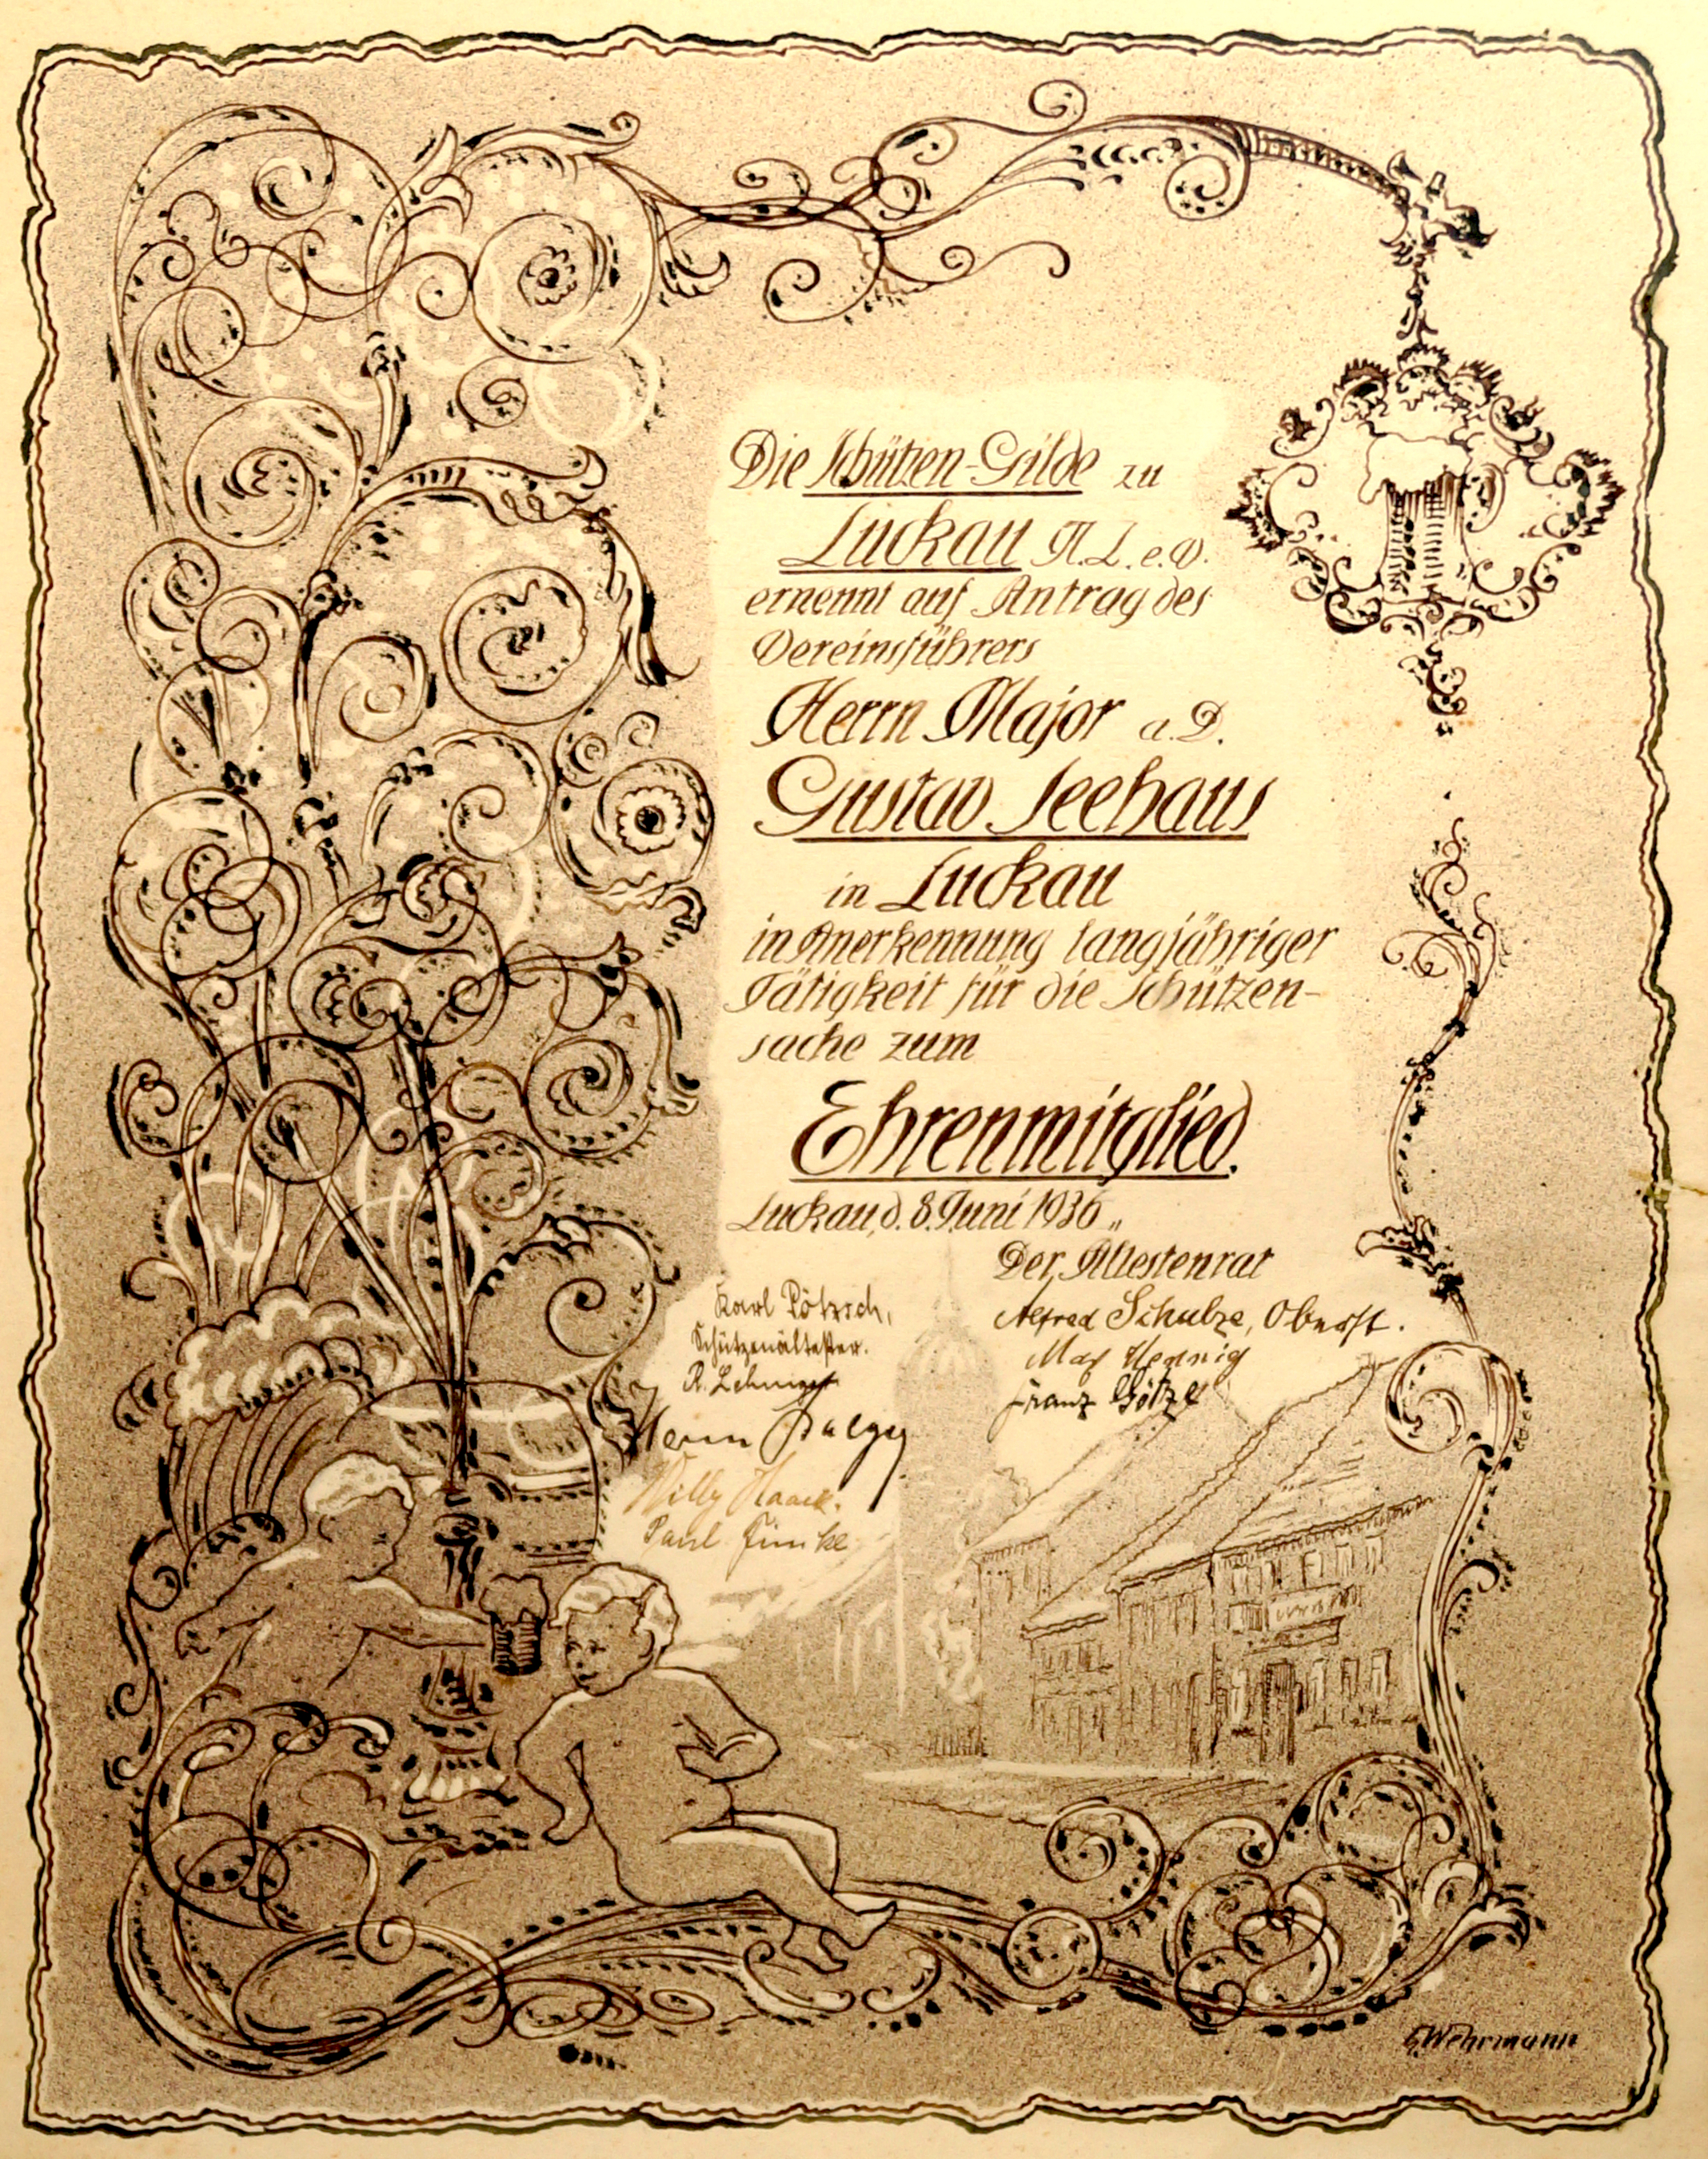 Die Schützen-Gilde zu
Luckau N.L. e.V.
ernennt auf Antrag des
Vereinsführers
Herrn Major a.D.
Gustav Seehaus
in Luckau
in Anerkennung langjähriger
Tätigkeit für die Schützen-
sache zum
Ehrenmitglied.
Luckau, d. 8. Juni 1936
Der Ältestenrat
Karl Pötzsch,
Schützenältester.
R.
Willy Haack.
Paul
Alfred Schulze, Oberst.
Max Hennig
Franz Götze
G. Wehrmann